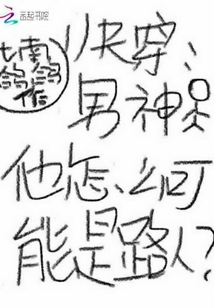 云起书院
南
鸽鸽
作
快穿：
男神
他怎么可
能是路人？